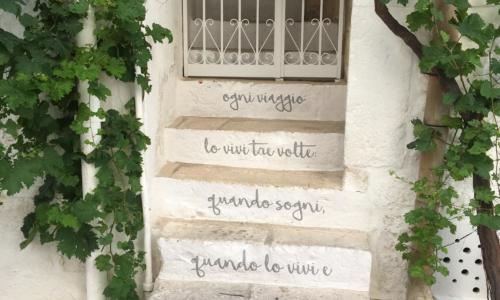 ogni viaggio
lo vivi tre volte:
quando sogni,
quando lo vivi e